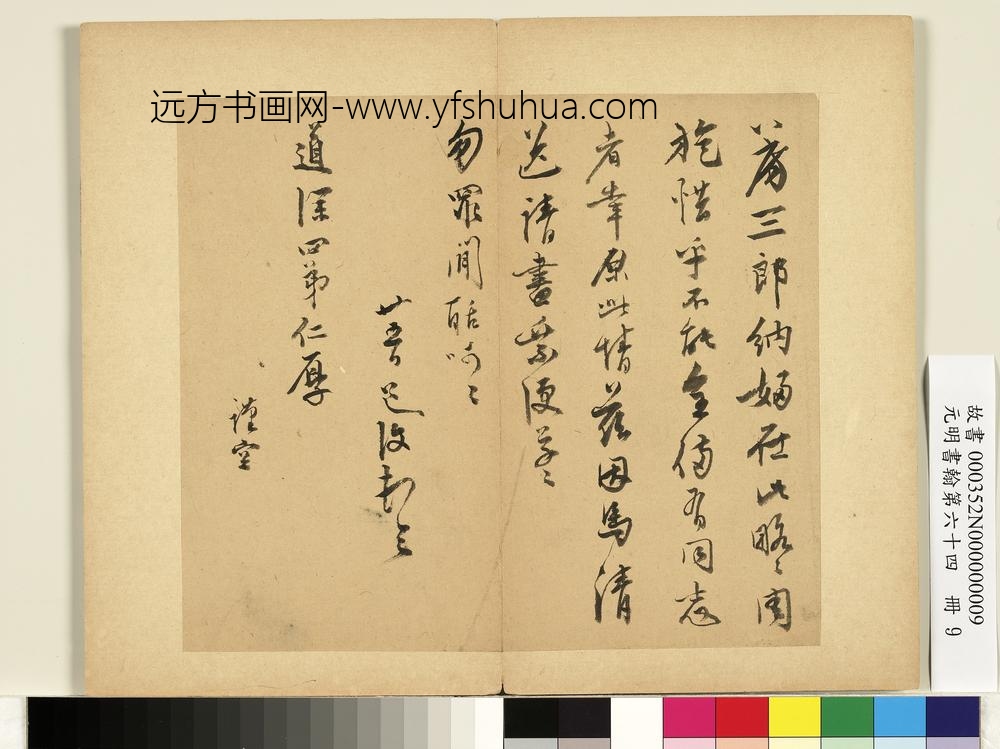 远方书画网-www.yfshuhua.com
三郎納婦在此略〻周
乎不能全備有同志
者幸原此情茲因馬清
送請書柬便草〻
勿罪聞
廿五日 復 
道深四弟仁厚
謹空
故書 000352N000000009
元明書翰第六十四 冊 9